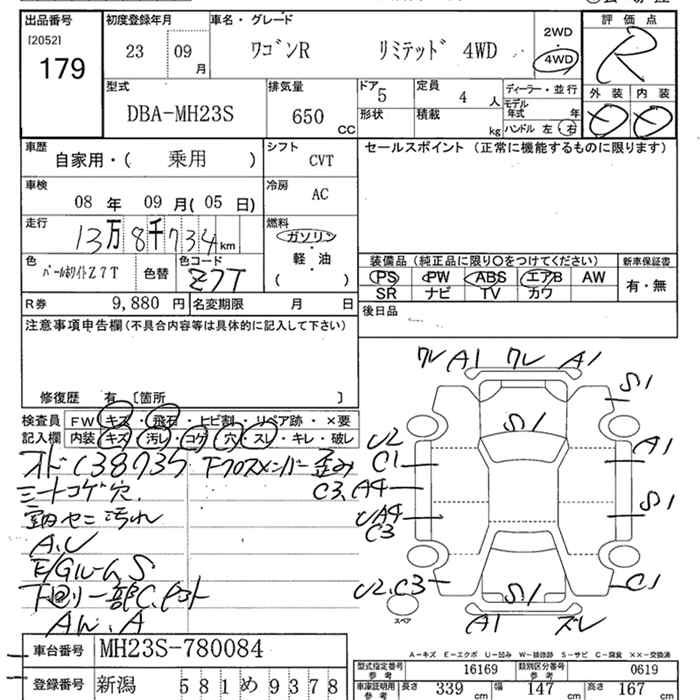 出品番号 初度登録年月 車名・グレード 評価点
[2052] 2WD
179 23 09月 ワゴンR リミテッド 4WD 4WD R
型式 排気量 ドア 5 定員 4人 ディーラー・並行 外装 内装
DBA-MH23S 650 CC 形状 積載 kg モデル年式 年
ハンドル 左・右
車歴 自家用・( 乗用 ) シフト CVT セールスポイント (正常に機能するものに限ります)
車検 08年 09月(05日) 冷房 AC
走行 13万8千734km 燃料 ガソリン・軽・油 ( )
色 パールホワイトZ7T 色替 色コード Z7T
装備品 (純正品に限り○をつけてください) 新車保証書
PS PW ABS エアB AW 有・無
SR ナビ TV カワ
R券 9,880円 名変期限 月 日 後日品
注意事項申告欄 (不具合内容等は具体的に記入して下さい)
修復歴 有 〔箇所 〕
検査員 FW キズ・飛石・ヒビ割・リペア跡・×要
記入欄 内装 キズ・汚レ・コゲ・穴・スレ・キレ・破レ
オド138735 下クロスメンバー歪み
シートコゲ穴.
室内セニ汚れ
A.U
E/Gルーム S
下回り一部C.
AW.A
ワレ A1 ワレ A1
S1
S1
U2
C1
A1
C3.A4
S1
UA4
C3
U2.C3
S1
C1
A1 ズレ
スペア
A-キズ E-エクボ U-凹み W-補修跡 S-サビ C-腐食 ××-交換済
車台番号 MH23S-780084
登録番号 新潟 581 め 9378
型式指定番号 参考 16169 類別区分番号 参考 0619
車庫証明用 参考 長さ 339cm 幅 147cm 高さ 167cm